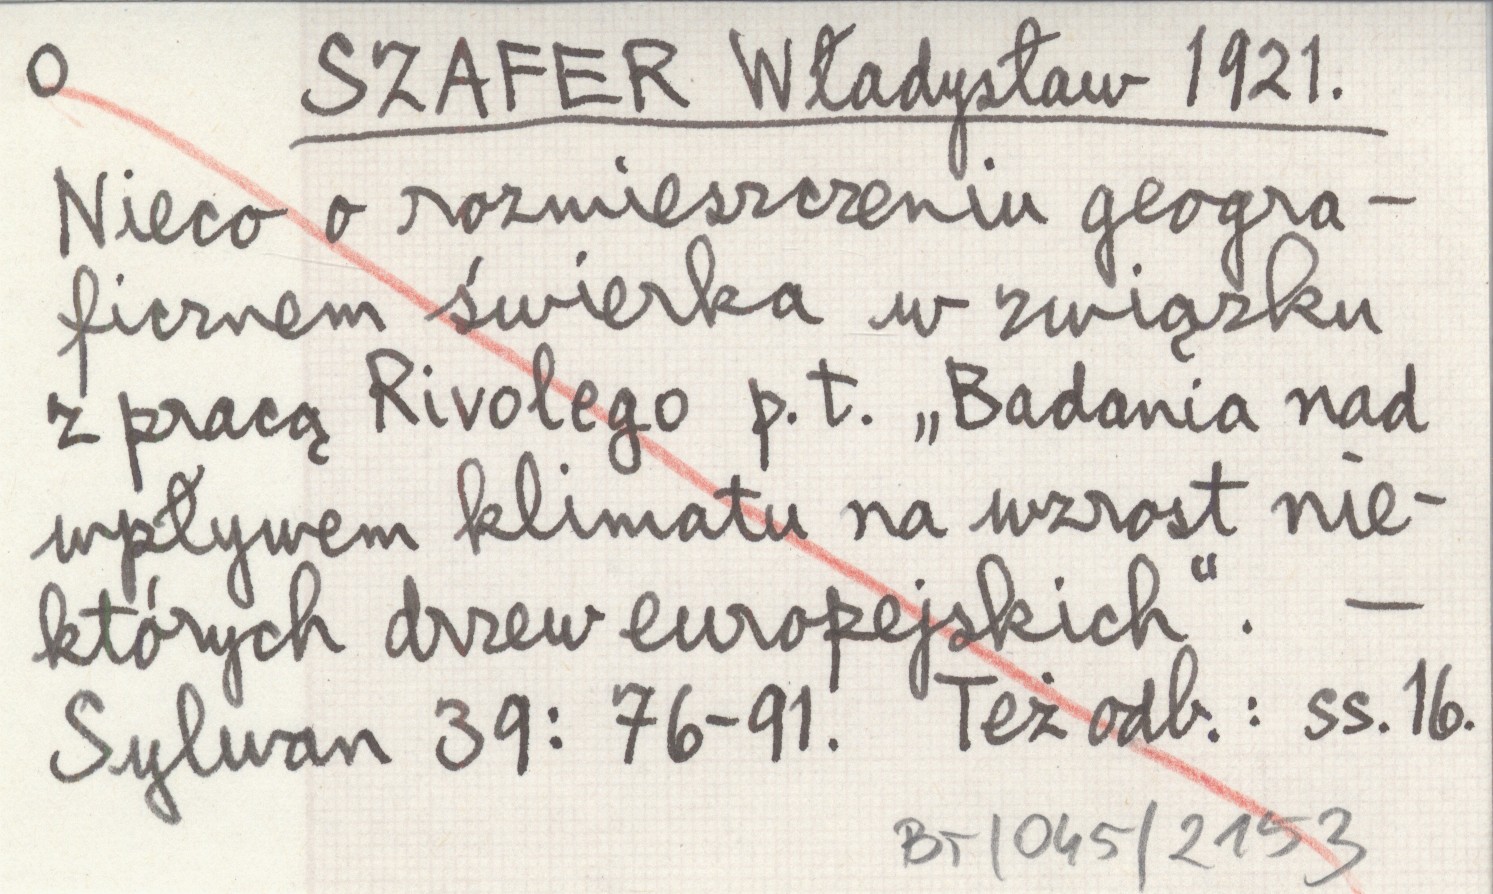 O SZAFER Władysław 1921.
Nieco o rozmieszczeniu geogra-
ficznem świerka w związku
z pracą Rivolego p.t. „Badania nad
wpływem klimatu na wzrost nie-
których drzew europejskich“. —
Sylwan 39: 76-91. Też odb.: ss. 16.
BT/045/2153